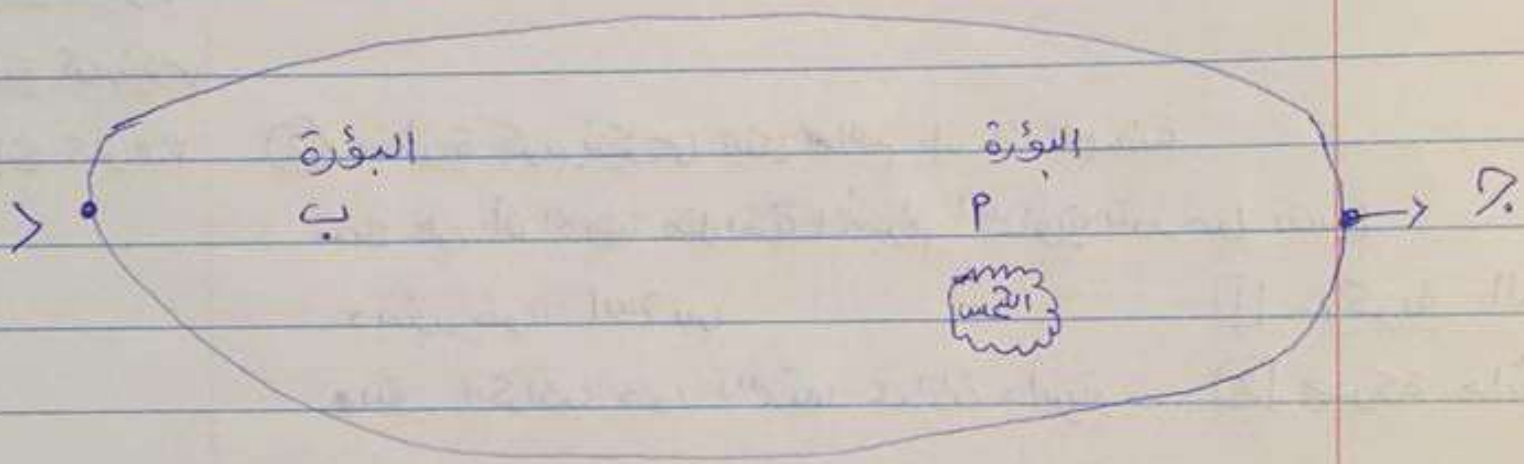 البؤرة البؤرة
ب م
الشمس